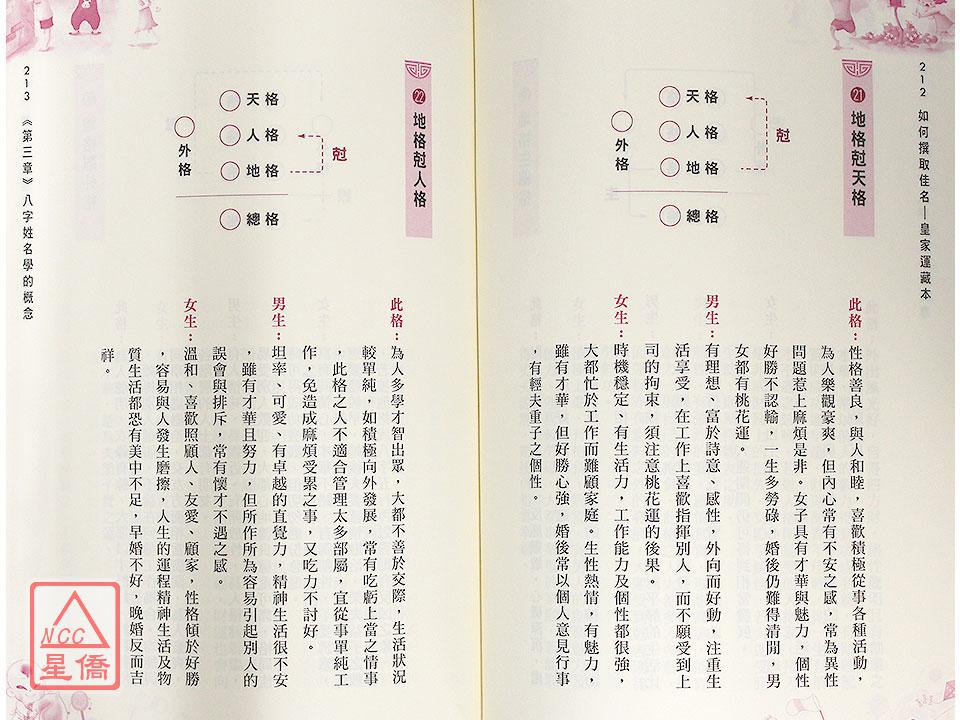 212 如何撰取佳名—皇家運藏本
㉑ 地格尅天格
天格
人格
地格
外格
總格
尅
此格：性格善良，與人和睦，喜歡積極從事各種活動，
為人樂觀豪爽，但內心常有不安之感，常為異性
問題惹上麻煩是非。女子具有才華與魅力，個性
好勝不認輸，一生多勞碌，婚後仍難得清閒，男
女都有桃花運。
男生：有理想、富於詩意、感性，外向而好動，注重生
活享受，在工作上喜歡指揮別人，而不願受到上
司的拘束，須注意桃花運的後果。
女生：時機穩定、有生活力，工作能力及個性都很強，
大都忙於工作而難顧家庭。生性熱情，有魅力，
雖有才華，但好勝心強，婚後常以個人意見行事
，有輕夫重子之個性。
㉒ 地格尅人格
天格
人格
地格
外格
總格
尅
此格：為人多學才智出眾，大都不善於交際，生活狀況
較單純，如積極向外發展，常有吃虧上當之情事
，此格之人不適合管理太多部屬，宜從事單純工
作，免造成麻煩受累之事，又吃力不討好。
男生：坦率、可愛、有卓越的直覺力，精神生活很不安
，雖有才華且努力，但所作所為容易引起別人的
誤會與排斥，常有懷才不遇之感。
女生：溫和、喜歡照顧人、友愛、顧家，性格傾於好勝
，容易與人發生磨擦，人生的運程精神生活及物
質生活都恐有美中不足，早婚不好，晚婚反而吉
祥。
213 《第三章》八字姓名學的概念
NCC
星僑